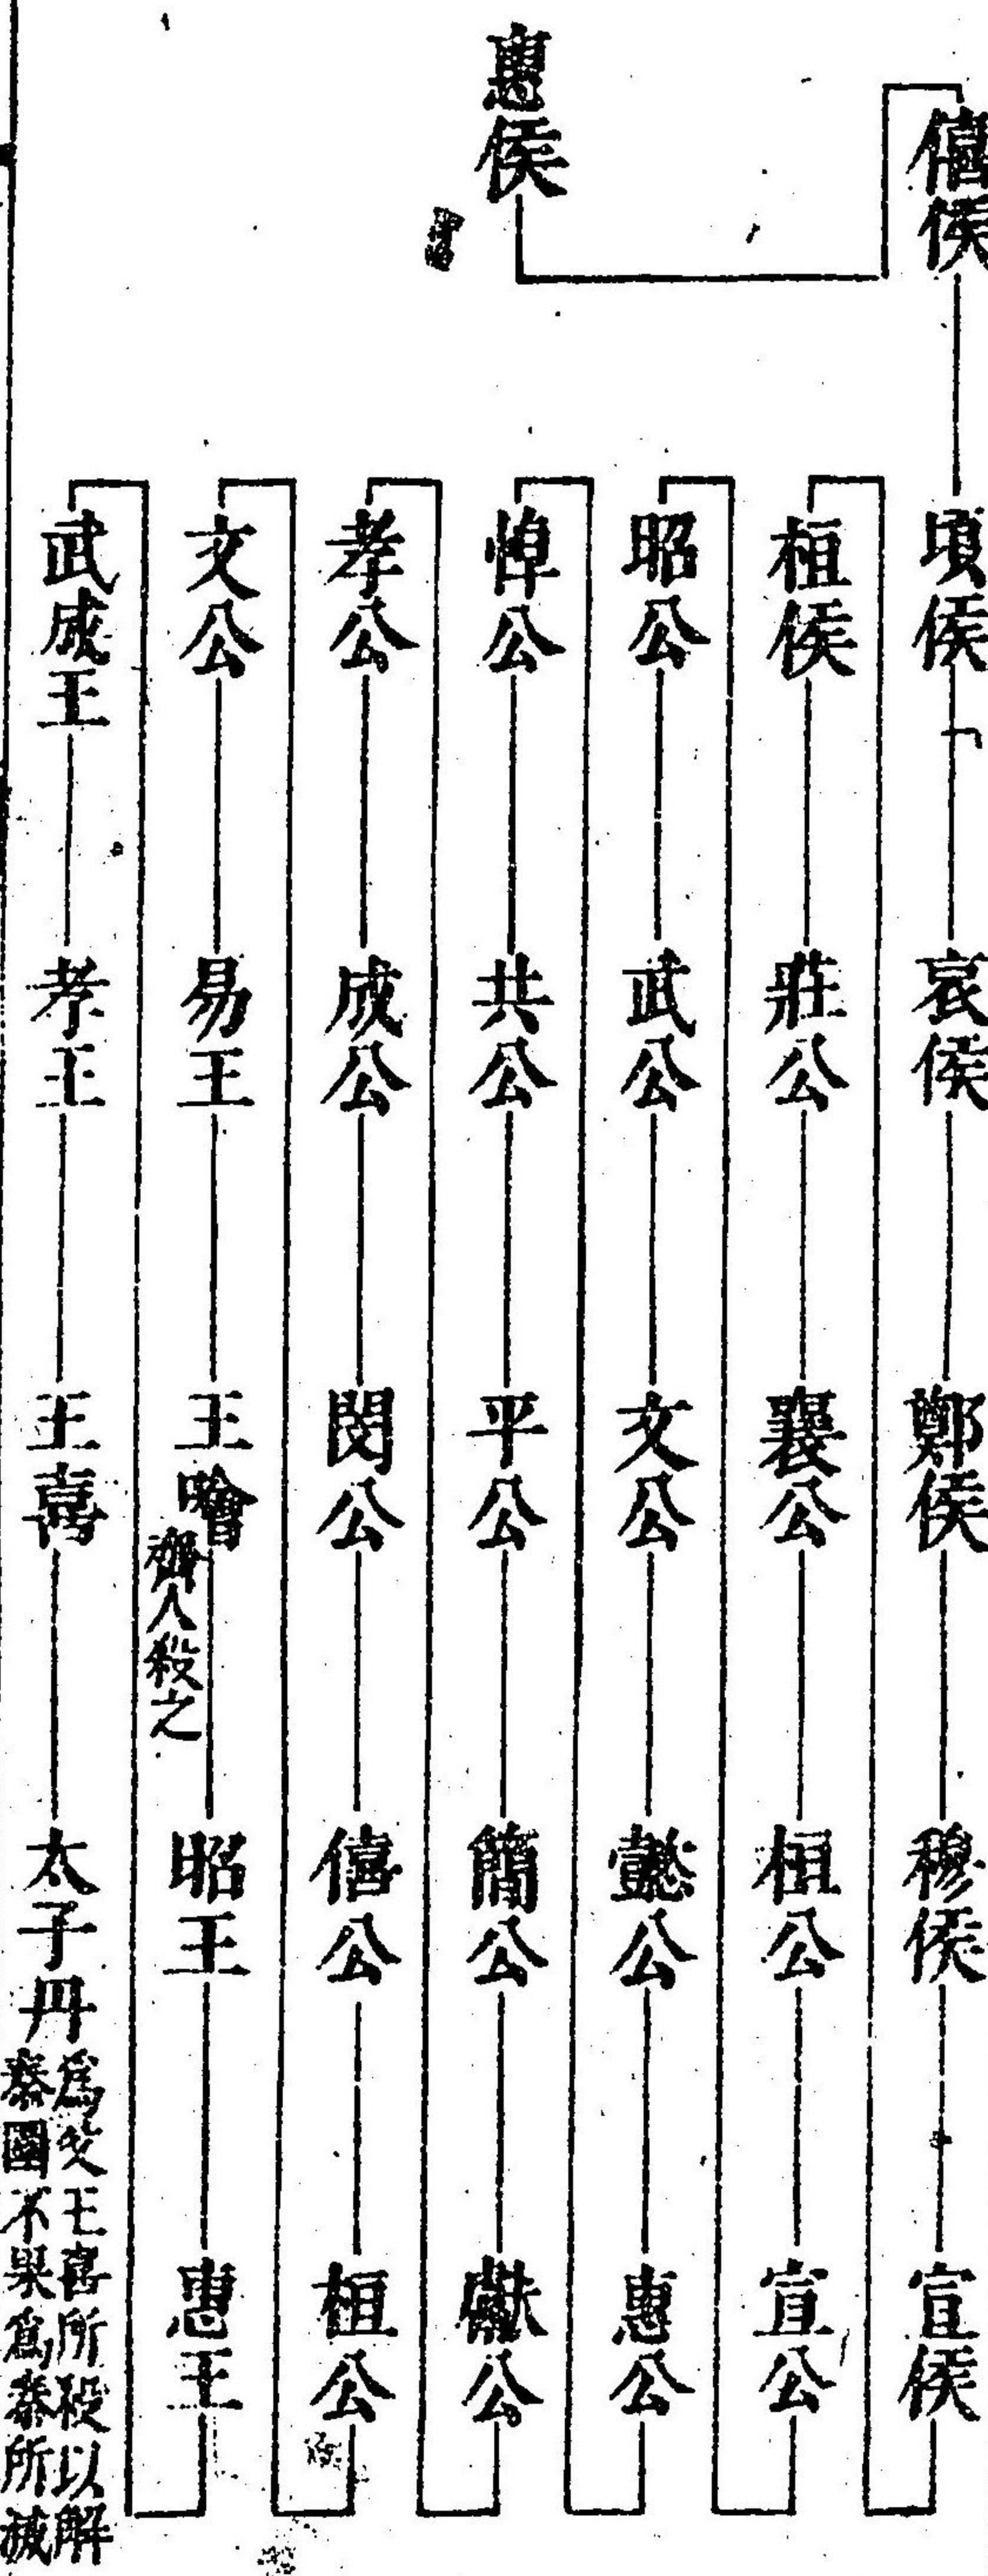 惠侯
僖侯
頃侯
哀侯
鄭侯
穆侯
宣侯
桓侯
莊公
襄公
桓公
宣公
昭公
武公
文公
懿公
惠公
悼公
共公
平公
簡公
獻公
孝公
成公
閔公
僖公
桓公
文公
易王
王噲
齊人殺之
昭王
惠王
武成王
孝王
王喜
太子丹
爲父王喜所殺以解
秦圍不果爲秦所滅